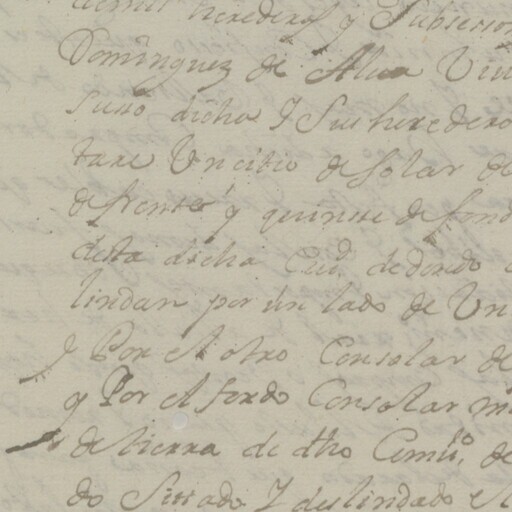 herederos y Subsesor
Dominguez de Alua Viu
suso dicha Y Sus heredero
tare Un citio de Solar de
de frente y quinse de fond
desta dicha Ciud. dedondo
lindan por un lado de Un
Y Por el otro Consolar de
y Por el fondo Consolar mi
de tierra de dho Comu.o, de
do Situado Y deslindado el